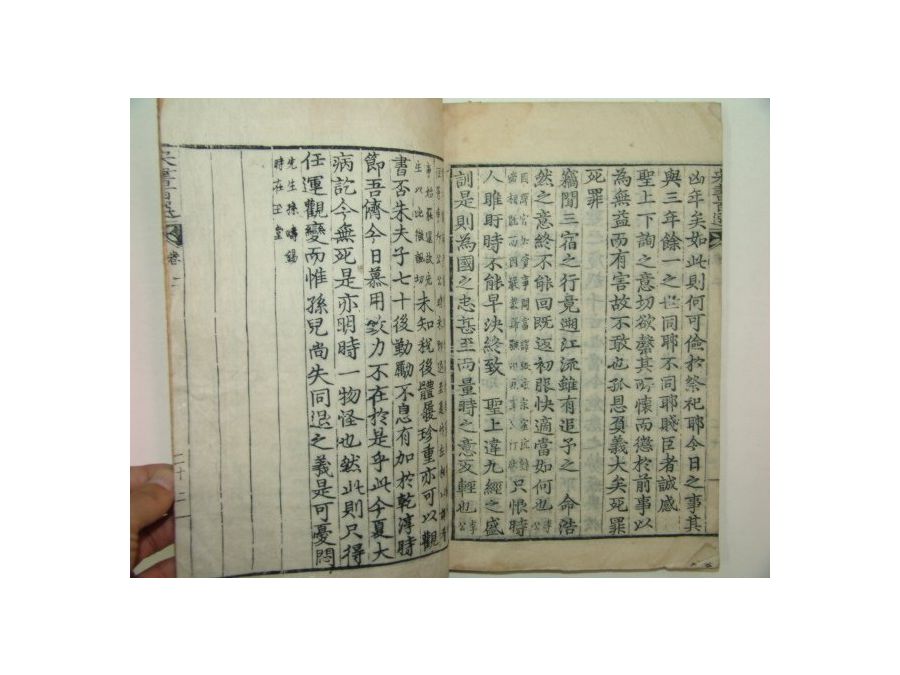 凶年矣如此則何可儉於祭祀耶今日之事其
與三年餘一之世同耶不同耶賤臣者誠感
聖上下詢之意切欲罄其所懷而懲於前事以
為無益而有害故不敢也孤恩負義大矣死罪
死罪
竊聞三宿之行竟遡江流雖有追予之 命浩
然之意終不能回旣返初服快適當如何也
只恨時
人睢盱時不能早決終致 聖上違九經之盛
訓是則為國之忠甚至而量時之意亥輕也
未知稅後體履珍重亦可以觀
書否朱夫子七十後勤勵不息有加於乾淳時
節吾儕今日慕用致力不在於是乎此今夏大
病訖今無死是亦明時一物怪也然此則只得
任運觀變而惟孫兒尚失同退之義是可憂悶
先生孫疇錫
時在玉堂
卷二
二十二